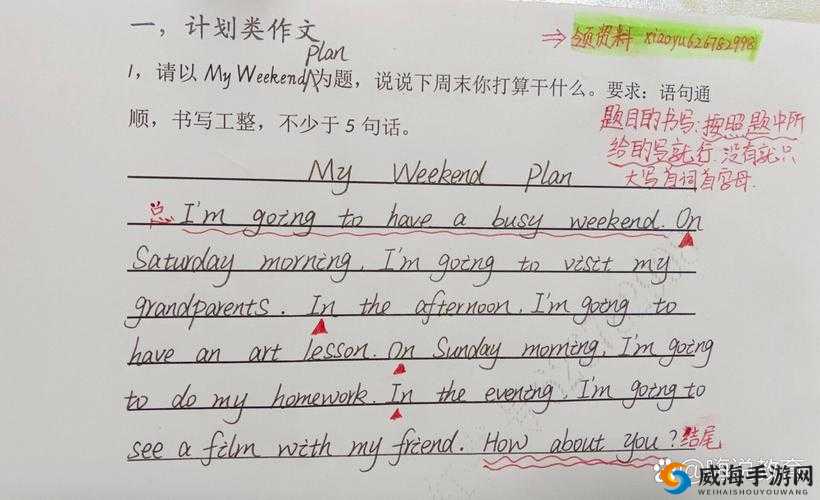 一，计划类作文
⇒ 领资料 xiaoyu626782998
plan
1，请以 My Weekend∧为题，说说下周末你打算干什么。要求：语句通
顺，书写工整，不少于 5 句话。
题目的书写：按照题中所
给的写就行.没有就只
大写首词首字母.
My Weekend plan
总 I'm going to have a busy weekend. On
Saturday morning, I'm going to visit my
grandparents. In the afternoon, I'm going to
have an art lesson. On Sunday morning, I'm going
to do my homework. In the evening, I'm going to
see a film with my friend. How about you? 结尾
嗨说教育
威海手游网
WEIHAISHOUYOUWANG